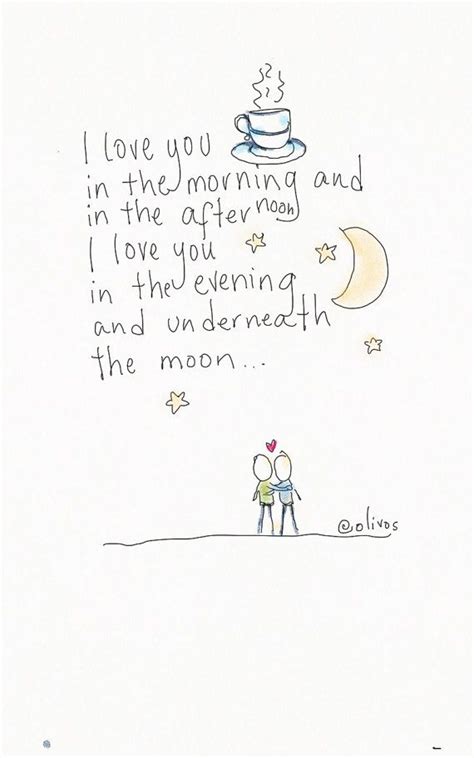 I love you
in the morning and
in the afternoon
I love you
in the evening
and underneath
the moon...
@olivos